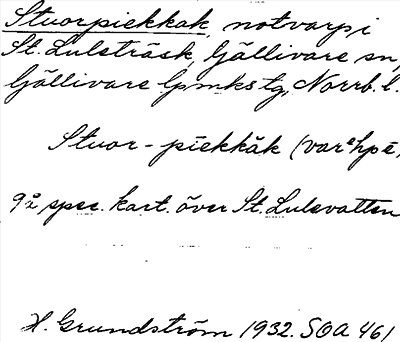 Stuorpiekkak, notvarp i
St. Luleträsk, Gällivare sn,
Gällivare lpmks tg, Norrb. l.
Stuor-piekkăk (varehpē,
på spec. kart. över St. Lulevatten
H. Grundström 1932. SOA 461